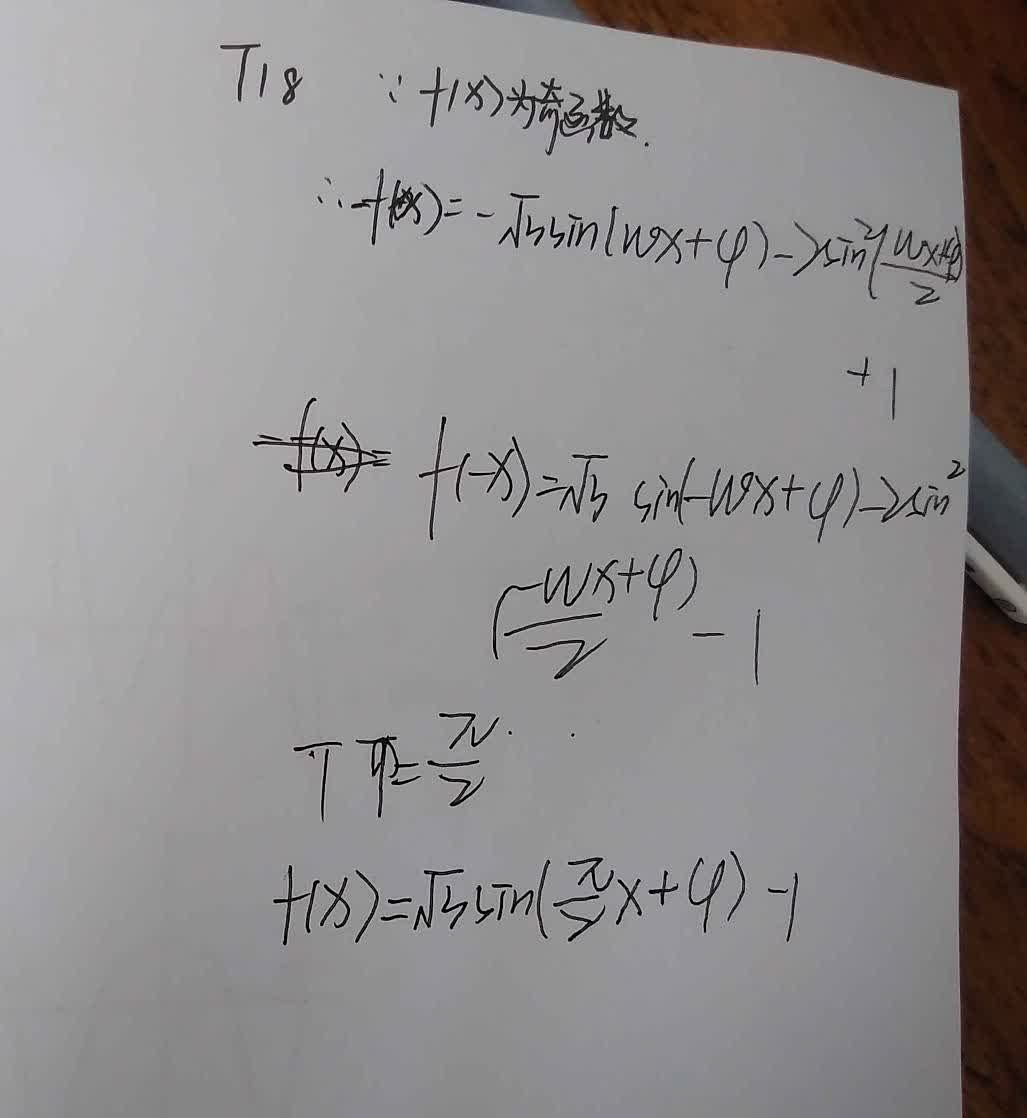 T18 ∵ f(x)为奇函数.
∴ -f(x) = -√3sin(wx+φ) - 2sin²(wx+φ)/2
+1
-f(x)= f(-x) = √3 sin(-wx+φ) - 2sin²
(-wx+φ)/2 - 1
T = π/2
f(x) = √3sin(x+φ) - 1